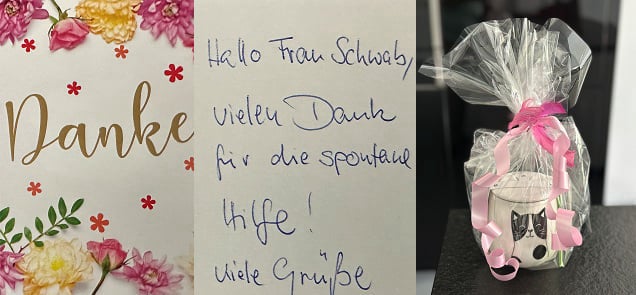 Danke
Hallo Frau Schwab,
vielen Dank
für die spontane
Hilfe!
viele Grüße